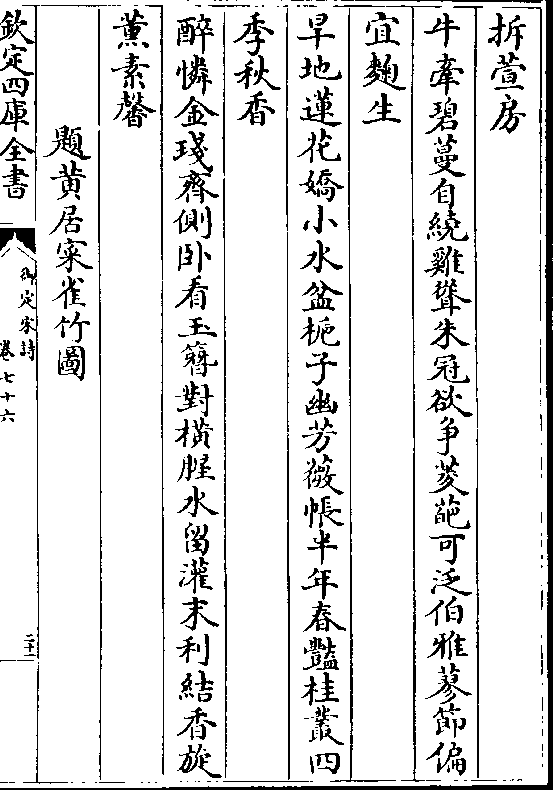 拆萱房
牛牽碧蔓自繞雞聳朱冠欲争芰葩可泛伯雅蓼節偏
宜麴生
旱地蓮花嬌小水盆梔子幽芳薇帳半年春豔桂叢四
季秋香
醉憐金琖齊側卧看玉簪對横腥水留灌末利結香旋
薰素馨
題黄居寀雀竹圖
欽定四庫全書
御定宋詩
卷七十六